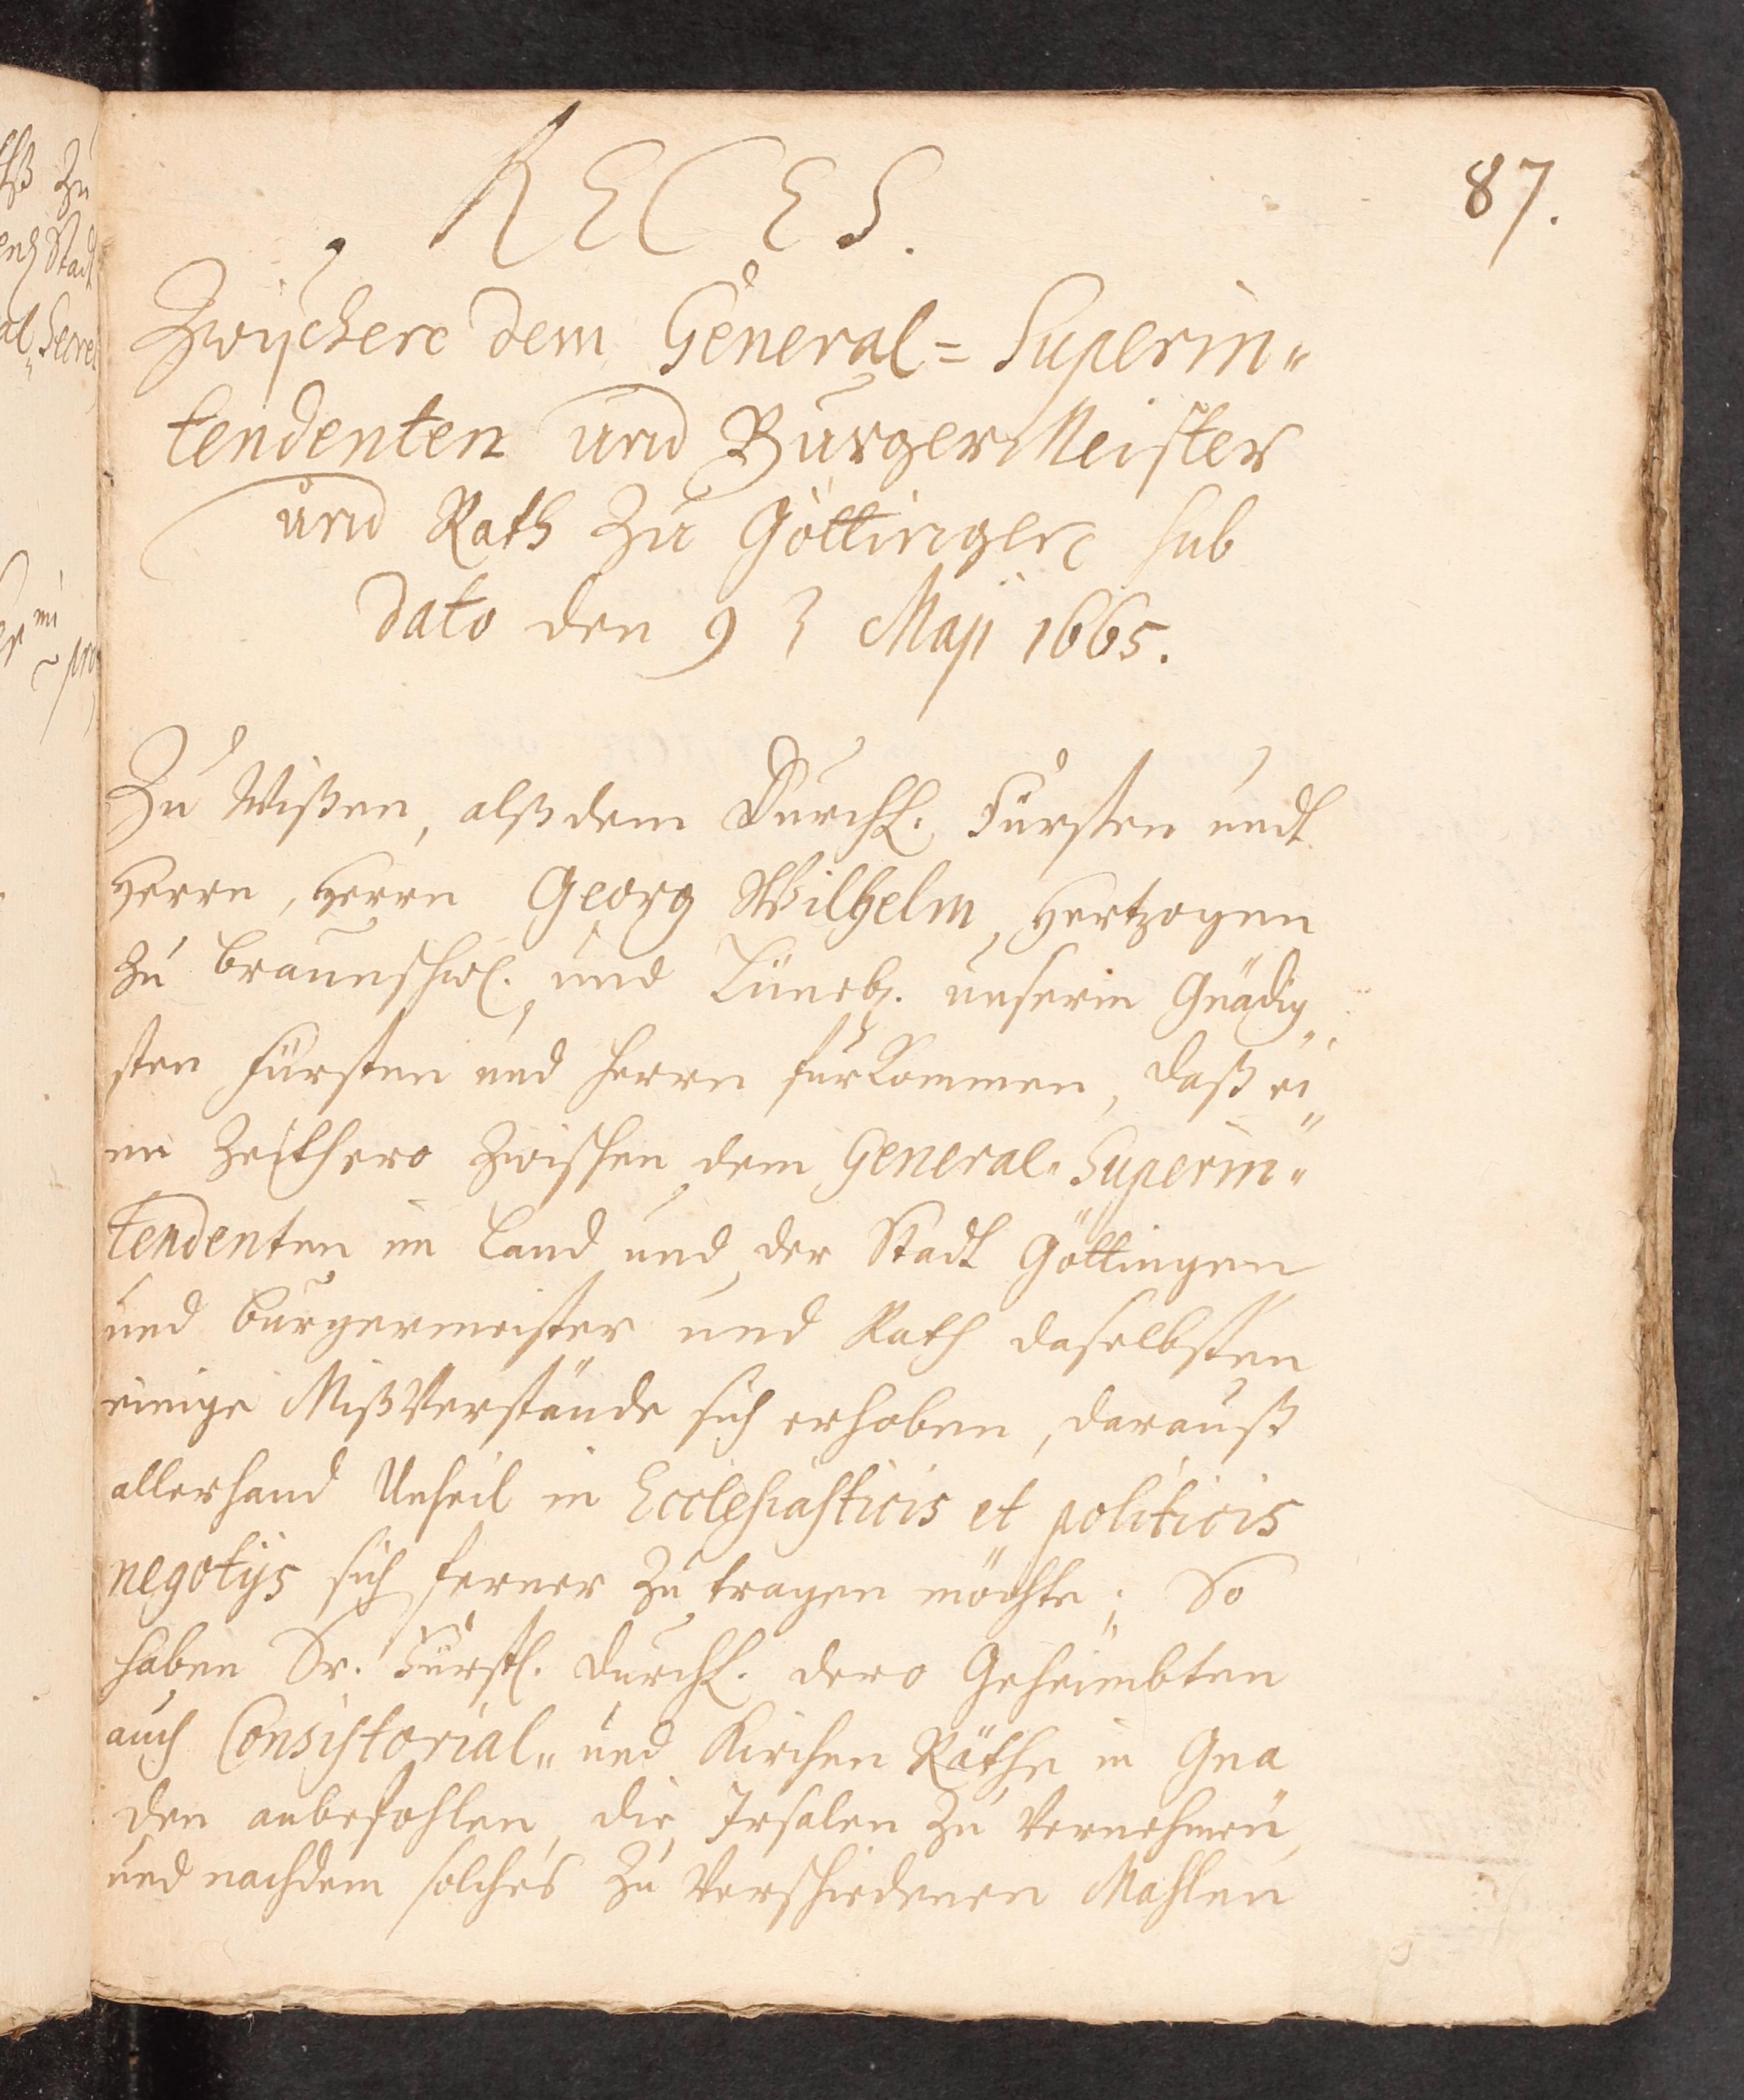 87.
RECES.
Zwischen dem General= Superin„
tendenten und BurgerMeister
und Rath Zu Göttingen sub
dato den 9 Maji 1665.
Zu Wißen, alß dem Durchl. Fürsten undt
Herrn, Herrn Georg Wilhelm, Hertzogen
zu braunschw. und Lüneb. unserm Gnädig„
sten Fürsten und Herrn fürkommen, daß ei„
ne Zeithero zwischen dem General„ Superin„
tendenten im Land und der Stadt Göttingen
und burgermeister und Rath daselbsten
einige MißVerstände sich erhoben, darauß
allerhand Unheil in Ecclesiasticis et politicis
negotijs sich ferner zu tragen möchte; So
haben Sr. Fürstl. durchl. dero Geheimbten
auch Consistorial„ und Kirchen Räthe in Gna
den anbefohlen, die zu Vernehmen,
und nachdem solches zu Verschiedenen Mahlen